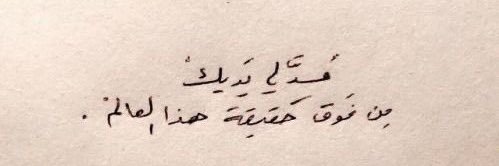 مُدَّ لي يَديكْ
مِن فَوق حَقيقة هذا العالمْ .